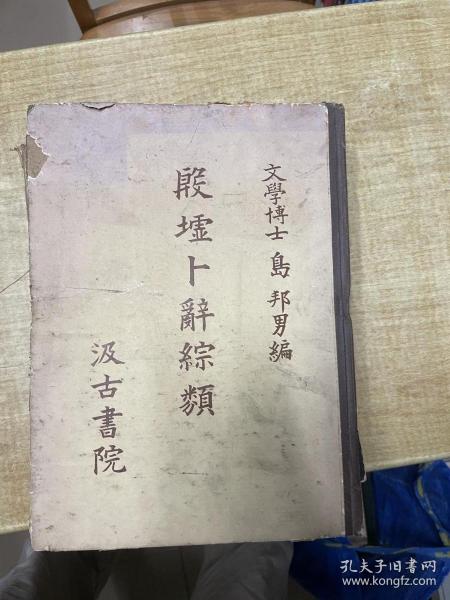 文學博士 島 邦男編
殷墟卜辭綜類
汲古書院
孔夫子旧书网
www.kongfz.com